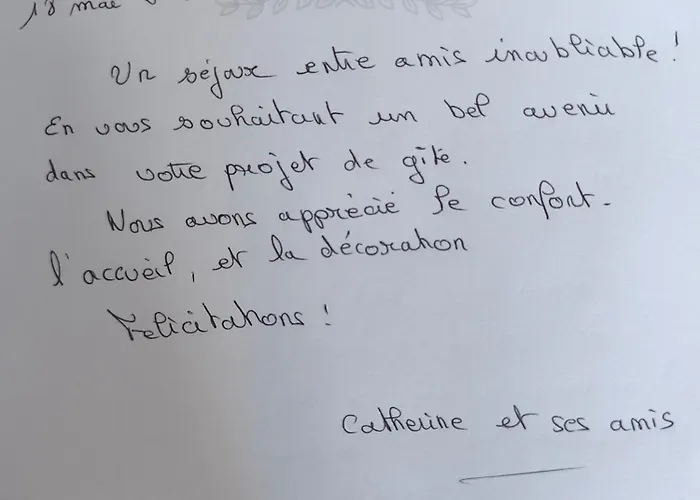 18 mai
Un séjour entre amis inoubliable !
En vous souhaitant un bel avenir
dans votre projet de gîte.
Nous avons apprécié le confort.
l'accueil, et la décoration
Félicitations !
Catherine et ses amis